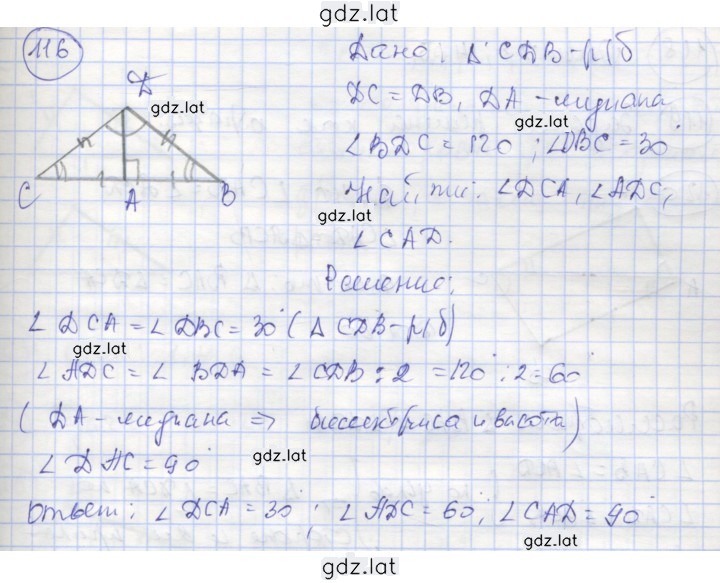 gdz.lat
116
Дано: Δ CDB - р/б
DC = DB, DA - медиана
∠BDC = 120°; ∠DBC = 30°
Найти: ∠DCA, ∠ADC,
∠CAD.
Решение:
D
gdz.lat
C
A
B
gdz.lat
gdz.lat
∠DCA = ∠DBC = 30° (Δ CDB - р/б)
gdz.lat
∠ADC = ∠BDA = ∠CDB : 2 = 120° : 2 = 60°
(DA - медиана ⇒ биссектриса и высота)
∠DAC = 90°
gdz.lat
Ответ: ∠DCA = 30°; ∠ADC = 60°; ∠CAD = 90°
gdz.lat
gdz.lat